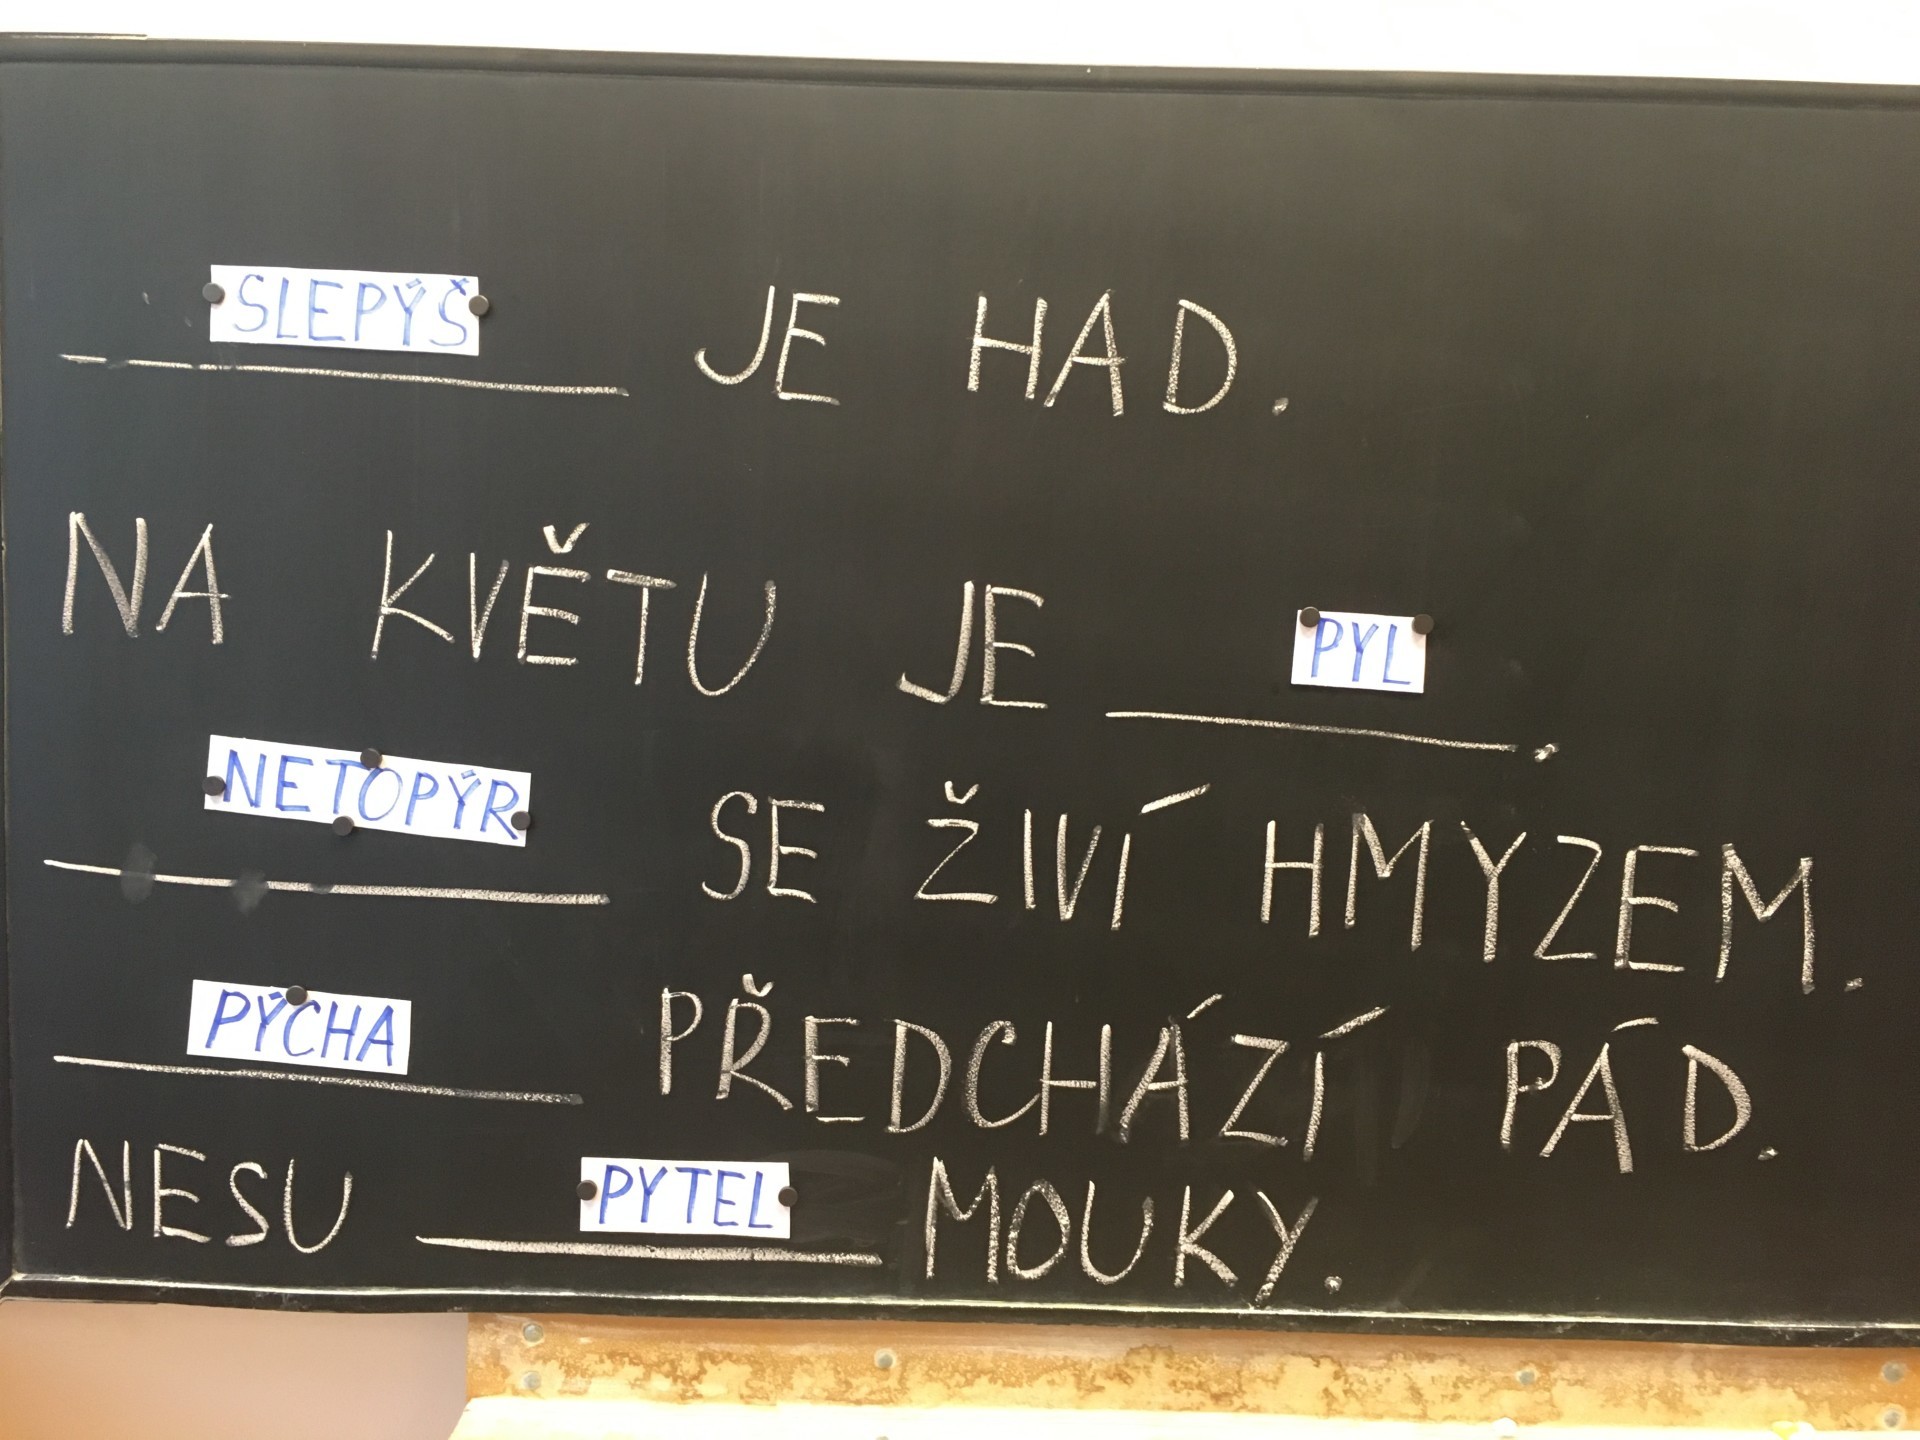 SLEPÝŠ JE HAD.
NA KVĚTU JE PYL.
NETOPÝR SE ŽIVÍ HMYZEM.
PÝCHA PŘEDCHÁZÍ PÁD.
NESU PYTEL MOUKY.